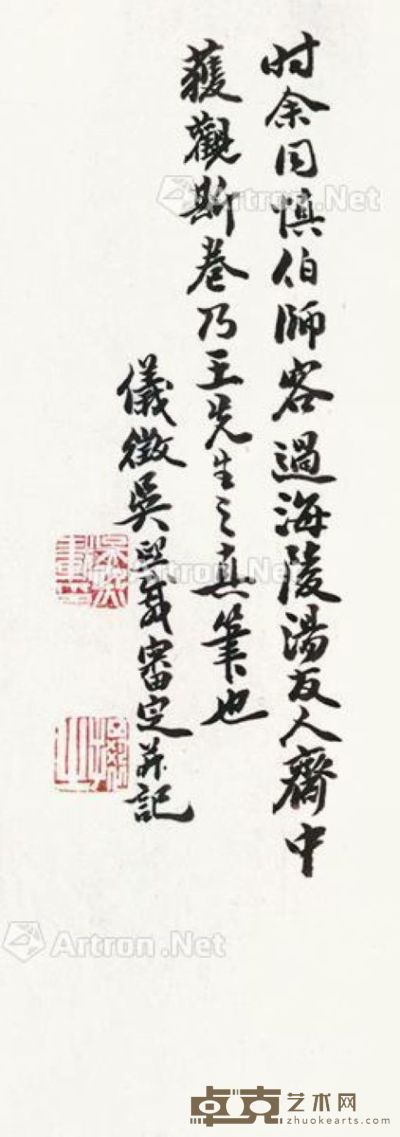 时余同慎伯師客過海陵湯友人齋中
獲觀斯卷乃王先生之真筆也
儀徵吳熙載審定并記
Artron.Net
Artron.Net
Artron.Net
Artron.Net
卓克艺术网
www.zhuokearts.com